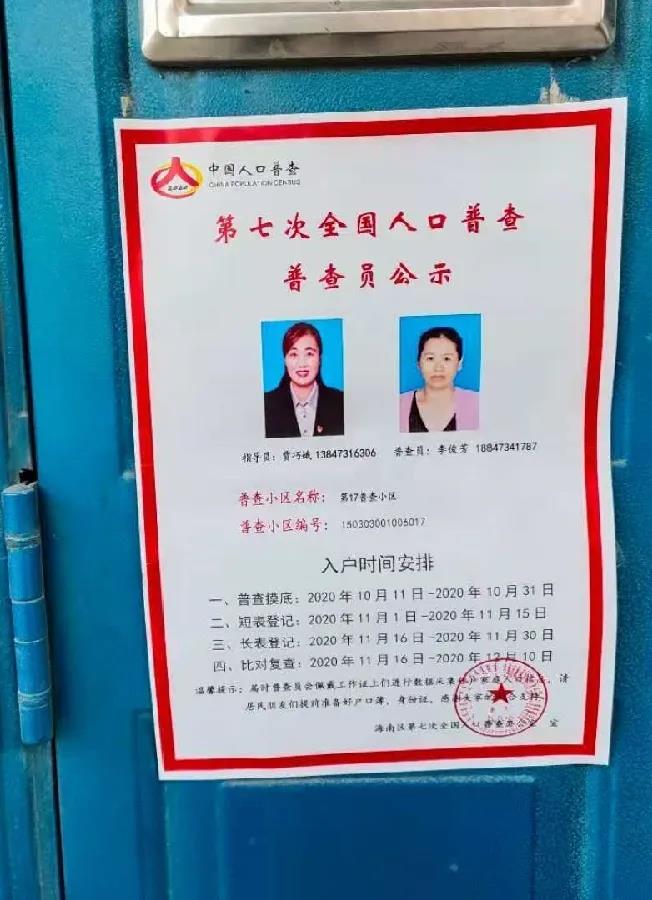 中国人口普查
CHINA POPULATION CENSUS
第七次全国人口普查
普查员公示
指导员：贾巧娥 13847316306 普查员：李俊芳 18847341787
普查小区名称： 第17普查小区
普查小区编号： 150303001006017
入户时间安排
一、普查摸底：2020 年 10 月 11 日-2020 年 10 月 31 日
二、短表登记：2020 年 11 月 1 日-2020 年 11 月 15 日
三、长表登记：2020 年 11 月 16 日-2020 年 11 月 30 日
四、比对复查：2020 年 11 月 16 日-2020 年 12 月 10 日
温馨提示：届时普查员会佩戴工作证上们进行数据采集住户家庭人口信息，请
居民朋友们提前准备好户口簿，身份证。感谢大家的配合支持
海南区第七次全国人口普查办公室 宣